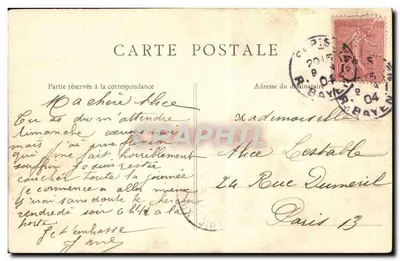 CARTE POSTALE
Partie réservée à la correspondance
Adresse du destinataire
Ma chère Alice
Tu as du m'attendre
dimanche
mais j'ai une
qui me fait horriblement
souffrir je suis restée
coucher toute la journée
je commence a aller mieux
j'irai sans doute te chercher
vendredi soir 6h 1/2 a la
porte
Je t'embrasse
Jane
Mademoiselle
Alice Lestable
2 Rue Dumeril
Paris 13
R. BAYEN
04
R. BAYEN
04